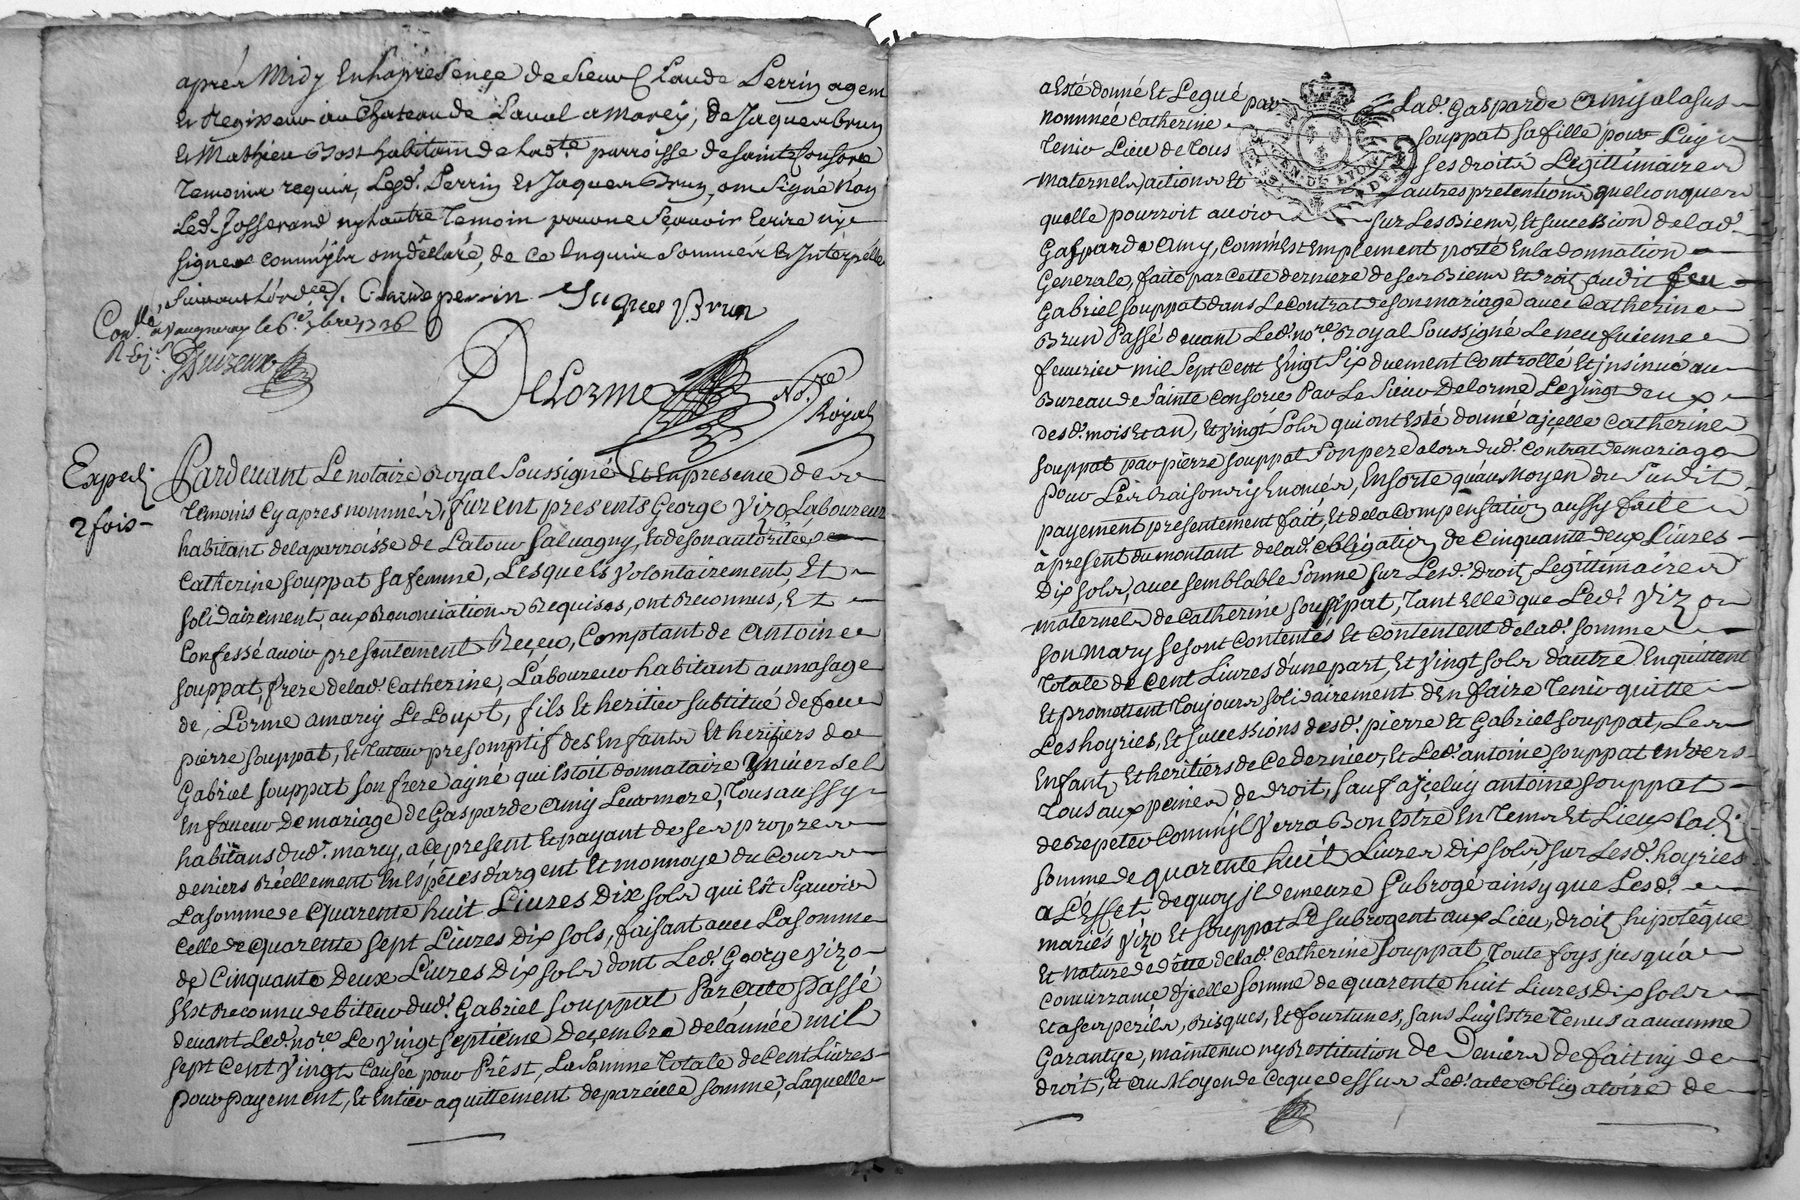 aprés Midy En la presence de Sieur Claude Perrin agent
Et Regisseur au Chateau de Laval a Marcy, de Jaques brun
Et Mathieu habitans de lad.te parroisse de sainte Consorce
Temoins requis, Led. Perrin Et Jaques Brun, ont signé Non
Led. Josserand ny Lautre Temoin pour ne sçavoir Ecrire ny
signer comm'jls ont déclaré, de Ce Enquis Sommés Et Interpellés
Suivant Lord.ce /. Claude perrin Jacques Brun
Con.llé a Vaugneray le 6.e
DeLorme No.re Royal
Expedi
2 fois
Pardevant Le notaire Royal Soussigné Et En presence des
Temoins Cy apres nommés, furent presents George Vizo Laboureur
habitant de la parroisse de Latour salvagny, Et de son autorité
Catherine souppat sa femme, Lesquels Volontairement, Et
solidairement, aux Renonciations Requises, ont Reconnus, Et
Confessé avoir presentement Reçeu, Comptant de Antoine
souppat, frere de lad. Catherine, Laboureur habitant au masage
de Lorme a marcy Le Loup, fils Et heritier substitué de feu
pierre souppat, Et Tuteur presomptif des Enfants Et heritiers de
Gabriel souppat son frere ayné qui Estoit donnataire Vniversel
En faveur De mariage de Gasparde Amy Leur mere, Tous aussy
habitans dud. marcy, a ce present Et payant de ses propres
deniers Réellement En Espéces d'argent Et monnoye du Cours
La somme de quarente huit Livres Dix sols qui Est Sçavoir
Celle de quarente sept Livres Dix sols, faisant avec La somme
de Cinquante Deux Livres Dix sols dont Led. George Vizo
s'Est Reconnu debiteur dud. Gabriel souppat Par acte Passé
devant Led. no.re Le Vingt septiéme Deçembre de Lannée mil
sept Cent Vingt Causée pour Prést, La Somme Totale de Cent Livres
pour payement, Et Entier aquittement de pareille somme, Laquelle
a Esté donné Et Legué par Lad. Gasparde Amy a la sus
nommée Catherine souppat sa fille pour Luy
Tenir Lieu de Tous ses droits Legittimaires
Maternels, actions Et autres pretentions quelconques
quelle pourroit avoir sur Les Biens, Et succession de lad.
Gasparde Amy, comm'Est Emplement porté En la donnation
Generale, faite par Cette derniere de ses Biens Et Droits audit feu
Gabriel souppat dans Le Contrat de son mariage avec Catherine
Brun Passé devant Led. no.re Royal Soussigné Le neufuieme
fevrier mil Sept Cent Vingt Six duement Controllé Et jnsinué au
Bureau de Sainte Consorce Par Le Sieur Delorme Le Vingt deux
desd. mois Et an, Et Vingt Sols qui ont Esté donné a jçelle Catherine
souppat par pierre souppat Son pere alors dud. Contrat de mariage
pour Les Raisons y Enoncés, En sorte qu'au Moyen du Susdit
payement presentement fait, Et de la Compensation aussy faite
à present du montant de lad. obligation de Cinquante deux Livres
Dix sols, avec semblable Somme sur Lesd. Droits Legittimaires
maternels de Catherine souppat, Tant Elle que Led. Vizo
son Mary se sont Contentés Et Contentent de lad. somme
Totale de Cent Livres d'une part, Et Vingt sols d'autre En quittent
Et promettent Toujours solidairement d'En faire Tenir quitte
Les hoyries, Et successions desd. pierre Et Gabriel souppat, Les
Enfants Et heritiers de Ce dernier, Et Led. antoine souppat Envers
Tous aux peines de droit, sauf a jçeluy antoine souppat
de Repeter Comm'jl Verra Bon Estre En Tems Et Lieux Lad.
somme de quarente huit Livres Dix sols, sur Lesd. hoyries
a L'Effet de quoy jl demeure subrogé ainsy que Lesd.
mariés Vizo Et souppat Le subrogent aux Lieu, droit, hipotéque
Et Nature de dette de lad. Catherine souppat, Toute foys jusqu'à
Concurrance d'jçelle somme de quarente huit Livres Dix sols
Et a ses perils, Risques, Et fourtunes, sans Luy Estre Tenus a aucunne
Garantye, maintenue ny Restitution de Deniers de fait ny de
droit, Et au Moyen de Ce que dessus Led. acte obligatoire de